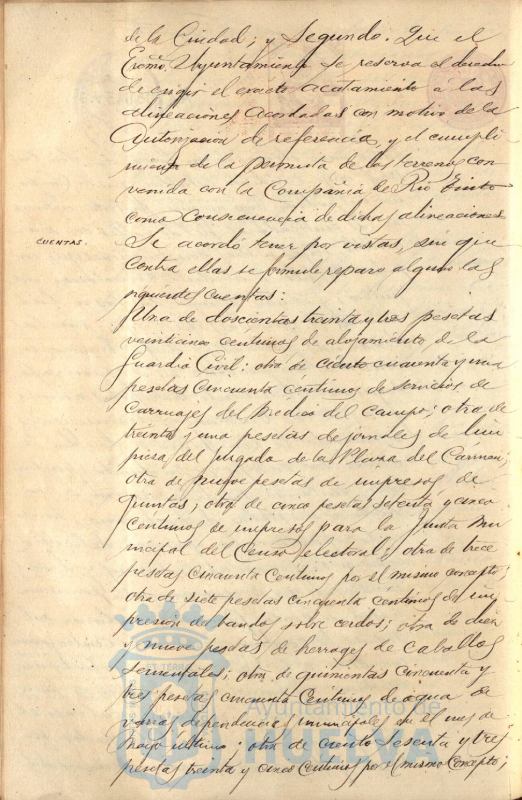 de la Ciudad; y Segundo. Que el
Excmo. Ayuntamiento se reserva el derecho
de exigir el exacto acatamiento a las
alineaciones acordadas con motivo de la
Autorizacion de referencia, y el cumpli
miento de la permuta de los terrenos con
venida con la Compañia de Rio Tinto
como consecuencia de dichas alineaciones
CUENTAS.
Se acordó tener por vistas, sin que
contra ellas se formule reparo alguno las
siguientes cuentas:
Una de doscientas treinta y tres pesetas
veinticinco centimos de alojamiento de la
Guardia Civil; otra de ciento cincuenta y una
pesetas cincuenta centimos de servicios de
carruajes del Medico del Campo; otra de
treinta y una pesetas de jornales de lim
pieza del Juzgado de la Plaza del Carmen;
otra de nueve pesetas de impresos de
Quintas; otra de cinco pesetas setenta y cinco
centimos de impresos para la Junta Mu
nicipal del Censo electoral; otra de trece
pesetas cincuenta centimos por el mismo concepto;
otra de siete pesetas cincuenta centimos de im
presion de bandos sobre cerdos; otra de diez
y nueve pesetas de herrages de caballos
sementales; otra de quinientas cincuenta y
tres pesetas cincuenta centimos de agua de
varias dependencias municipales en el mes de
Mayo ultimo; otra de ciento sesenta y tres
pesetas treinta y cinco centimos por el mismo concepto;
Ayuntamiento de
HUELVA